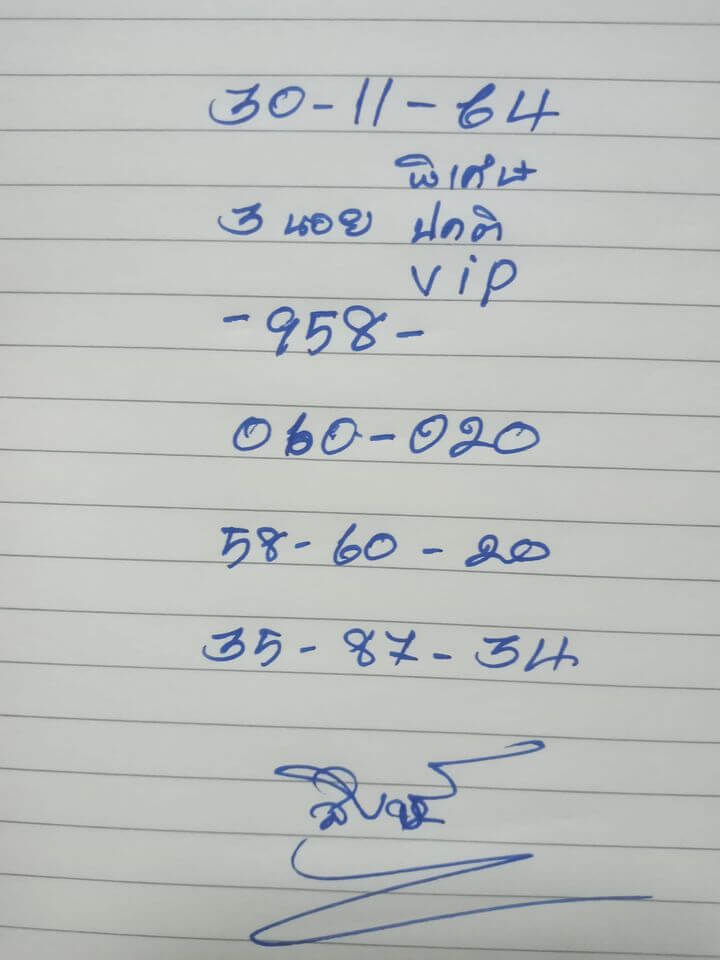 30-11-64
พิเศษ
3 นอย ปกติ
vip
-958-
060-020
58-60-20
35-87-34